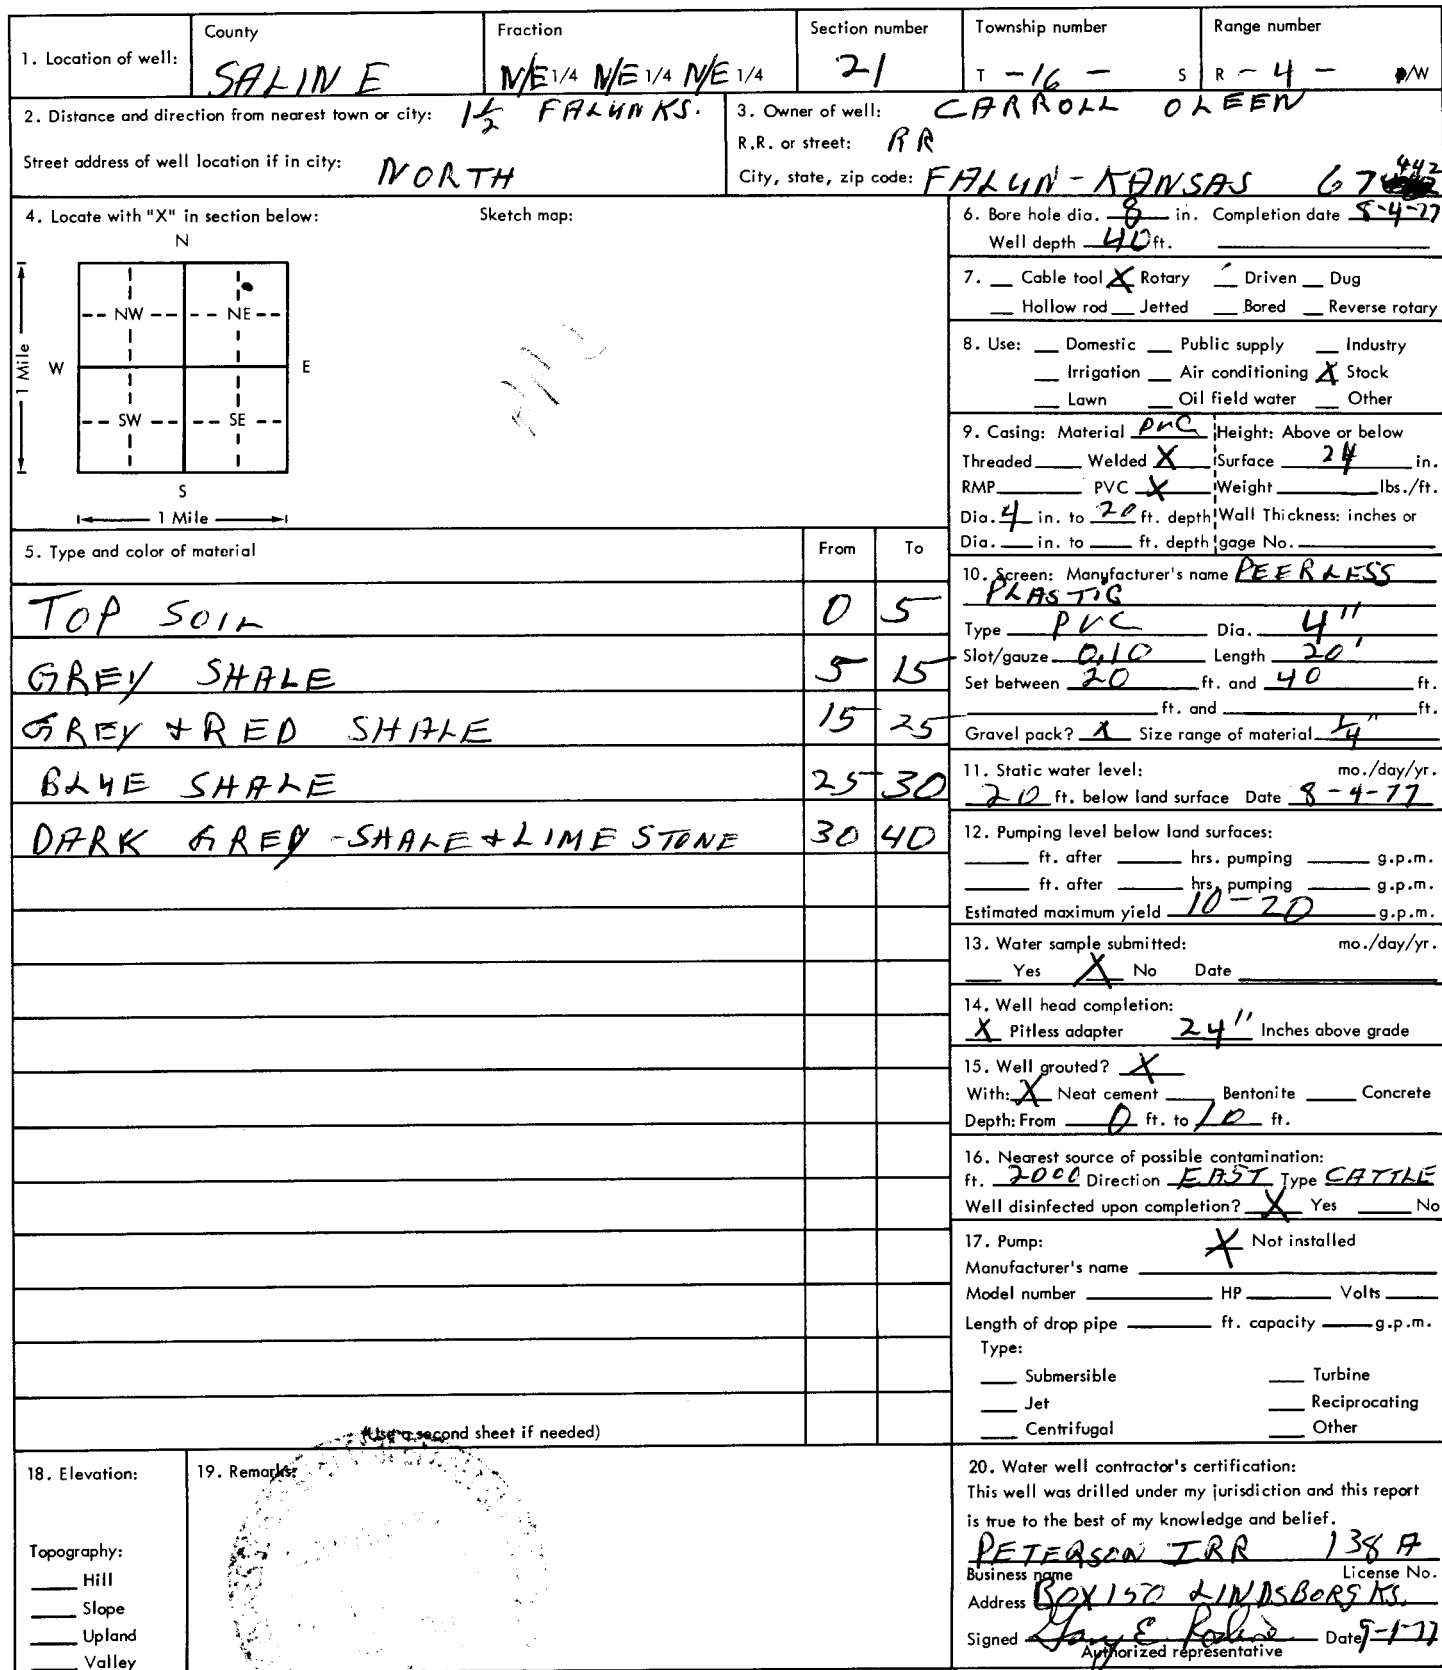 1. Location of well: County SALINE Fraction N/E 1/4 N/E 1/4 N/E 1/4 Section number 21 Township number T -16- S Range number R -4- E/W
2. Distance and direction from nearest town or city: 1 1/2 FALUN KS.
Street address of well location if in city: NORTH
3. Owner of well: CARROLL OLEEN
R.R. or street: RR
City, state, zip code: FALUN-KANSAS 67442
4. Locate with "X" in section below: Sketch map:
N
NW NE
W E
1 Mile
SW SE
S
1 Mile
6. Bore hole dia. 8 in. Completion date 8-4-77
Well depth 40 ft.
7. Cable tool X Rotary Driven Dug
Hollow rod Jetted Bored Reverse rotary
8. Use: Domestic Public supply Industry
Irrigation Air conditioning X Stock
Lawn Oil field water Other
9. Casing: Material PVC Height: Above or below
Threaded Welded X Surface 24 in.
RMP PVC X Weight lbs./ft.
Dia. 4 in. to 20 ft. depth Wall Thickness: inches or
Dia. in. to ft. depth gage No.
5. Type and color of material From To
TOP SOIL 0 5
GREY SHALE 5 15
GREY + RED SHALE 15 25
BLUE SHALE 25 30
DARK GREY - SHALE + LIME STONE 30 40
(Use a second sheet if needed)
10. Screen: Manufacturer's name PEERLESS
PLASTIC
Type PVC Dia. 4"
Slot/gauze 0,10 Length 20'
Set between 20 ft. and 40 ft.
ft. and ft.
Gravel pack? X Size range of material 1/4"
11. Static water level: mo./day/yr.
20 ft. below land surface Date 8-4-77
12. Pumping level below land surfaces:
ft. after hrs. pumping g.p.m.
ft. after hrs. pumping g.p.m.
Estimated maximum yield 10-20 g.p.m.
13. Water sample submitted: mo./day/yr.
Yes X No Date
14. Well head completion:
X Pitless adapter 24" Inches above grade
15. Well grouted? X
With: X Neat cement Bentonite Concrete
Depth: From 0 ft. to 10 ft.
16. Nearest source of possible contamination:
ft. 2000 Direction EAST Type CATTLE
Well disinfected upon completion? X Yes No
17. Pump: X Not installed
Manufacturer's name
Model number HP Volts
Length of drop pipe ft. capacity g.p.m.
Type:
Submersible Turbine
Jet Reciprocating
Centrifugal Other
18. Elevation:
Topography:
Hill
Slope
Upland
Valley
19. Remarks:
20. Water well contractor's certification:
This well was drilled under my jurisdiction and this report
is true to the best of my knowledge and belief.
PETERSON IRR 138 A
Business name License No.
Address BOX 150 LINDSBORG KS.
Signed Gary E. Date 9-1-77
Authorized representative